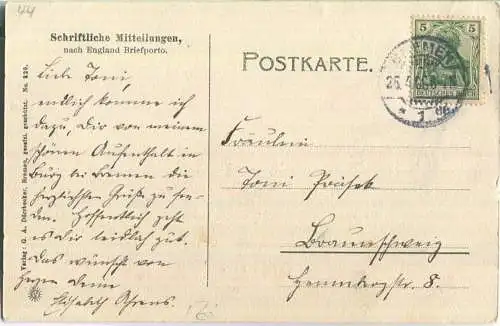 44
Schriftliche Mitteilungen,
nach England Briefporto.
Liebe Toni,
endlich komme ich
dazu, Dir von meinem
schönen Aufenthalt in
Burg bei Bremen die
herzlichsten Grüße zu sen-
den. Hoffentlich geht
es Dir leidlich gut.
Das wünscht von
Herzen Deine
Elisabeth Ahrens.
Verlag: G. A. Dörbecker, Bremen, gesetzl. geschützt. No. 429.
POSTKARTE.
5 5
BREMEN
25.4.
* 1 d *
DEUTSCHES REICH
Fräulein
Toni
Braunschweig
Hennebergstr. 8.